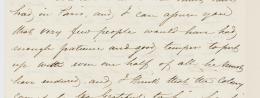 had in Paris, and I can assure you
that very few people would have had
enough patience and good temper to put
up with even one half of all he must
have endured, and I think that the Colony